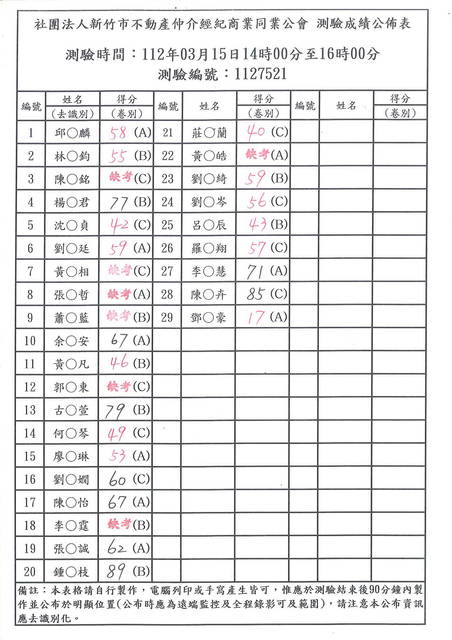 社團法人新竹市不動產仲介經紀商業同業公會 測驗成績公佈表
測驗時間：112年03月15日14時00分至16時00分
測驗編號：1127521
編號 姓名(去識別) 得分(卷別) 編號 姓名 得分(卷別) 編號 姓名 得分(卷別)
1 邱○麟 58 (A) 21 莊○蘭 40 (C)
2 林○鈞 55 (B) 22 黃○皓 缺考(A)
3 陳○銘 缺考(C) 23 劉○綺 59 (B)
4 楊○君 77 (B) 24 劉○岑 56 (C)
5 沈○貞 42 (C) 25 呂○辰 43 (B)
6 劉○廷 59 (A) 26 羅○翔 57 (C)
7 黃○相 缺考(C) 27 李○慧 71 (A)
8 張○哲 缺考(A) 28 陳○卉 85 (C)
9 蕭○藍 缺考(B) 29 鄧○豪 17 (A)
10 余○安 67 (A)
11 黃○凡 46 (B)
12 郭○東 缺考(C)
13 古○萱 79 (B)
14 何○琴 49 (C)
15 廖○琳 53 (A)
16 劉○嫺 60 (C)
17 陳○怡 67 (A)
18 李○霆 缺考(B)
19 張○誠 62 (A)
20 鍾○枝 89 (B)
備註：本表格請自行製作，電腦列印或手寫產生皆可，惟應於測驗結束後90分鐘內製
作並公布於明顯位置(公布時應為遠端監控及全程錄影可及範圍)，請注意本公布資訊
應去識別化。